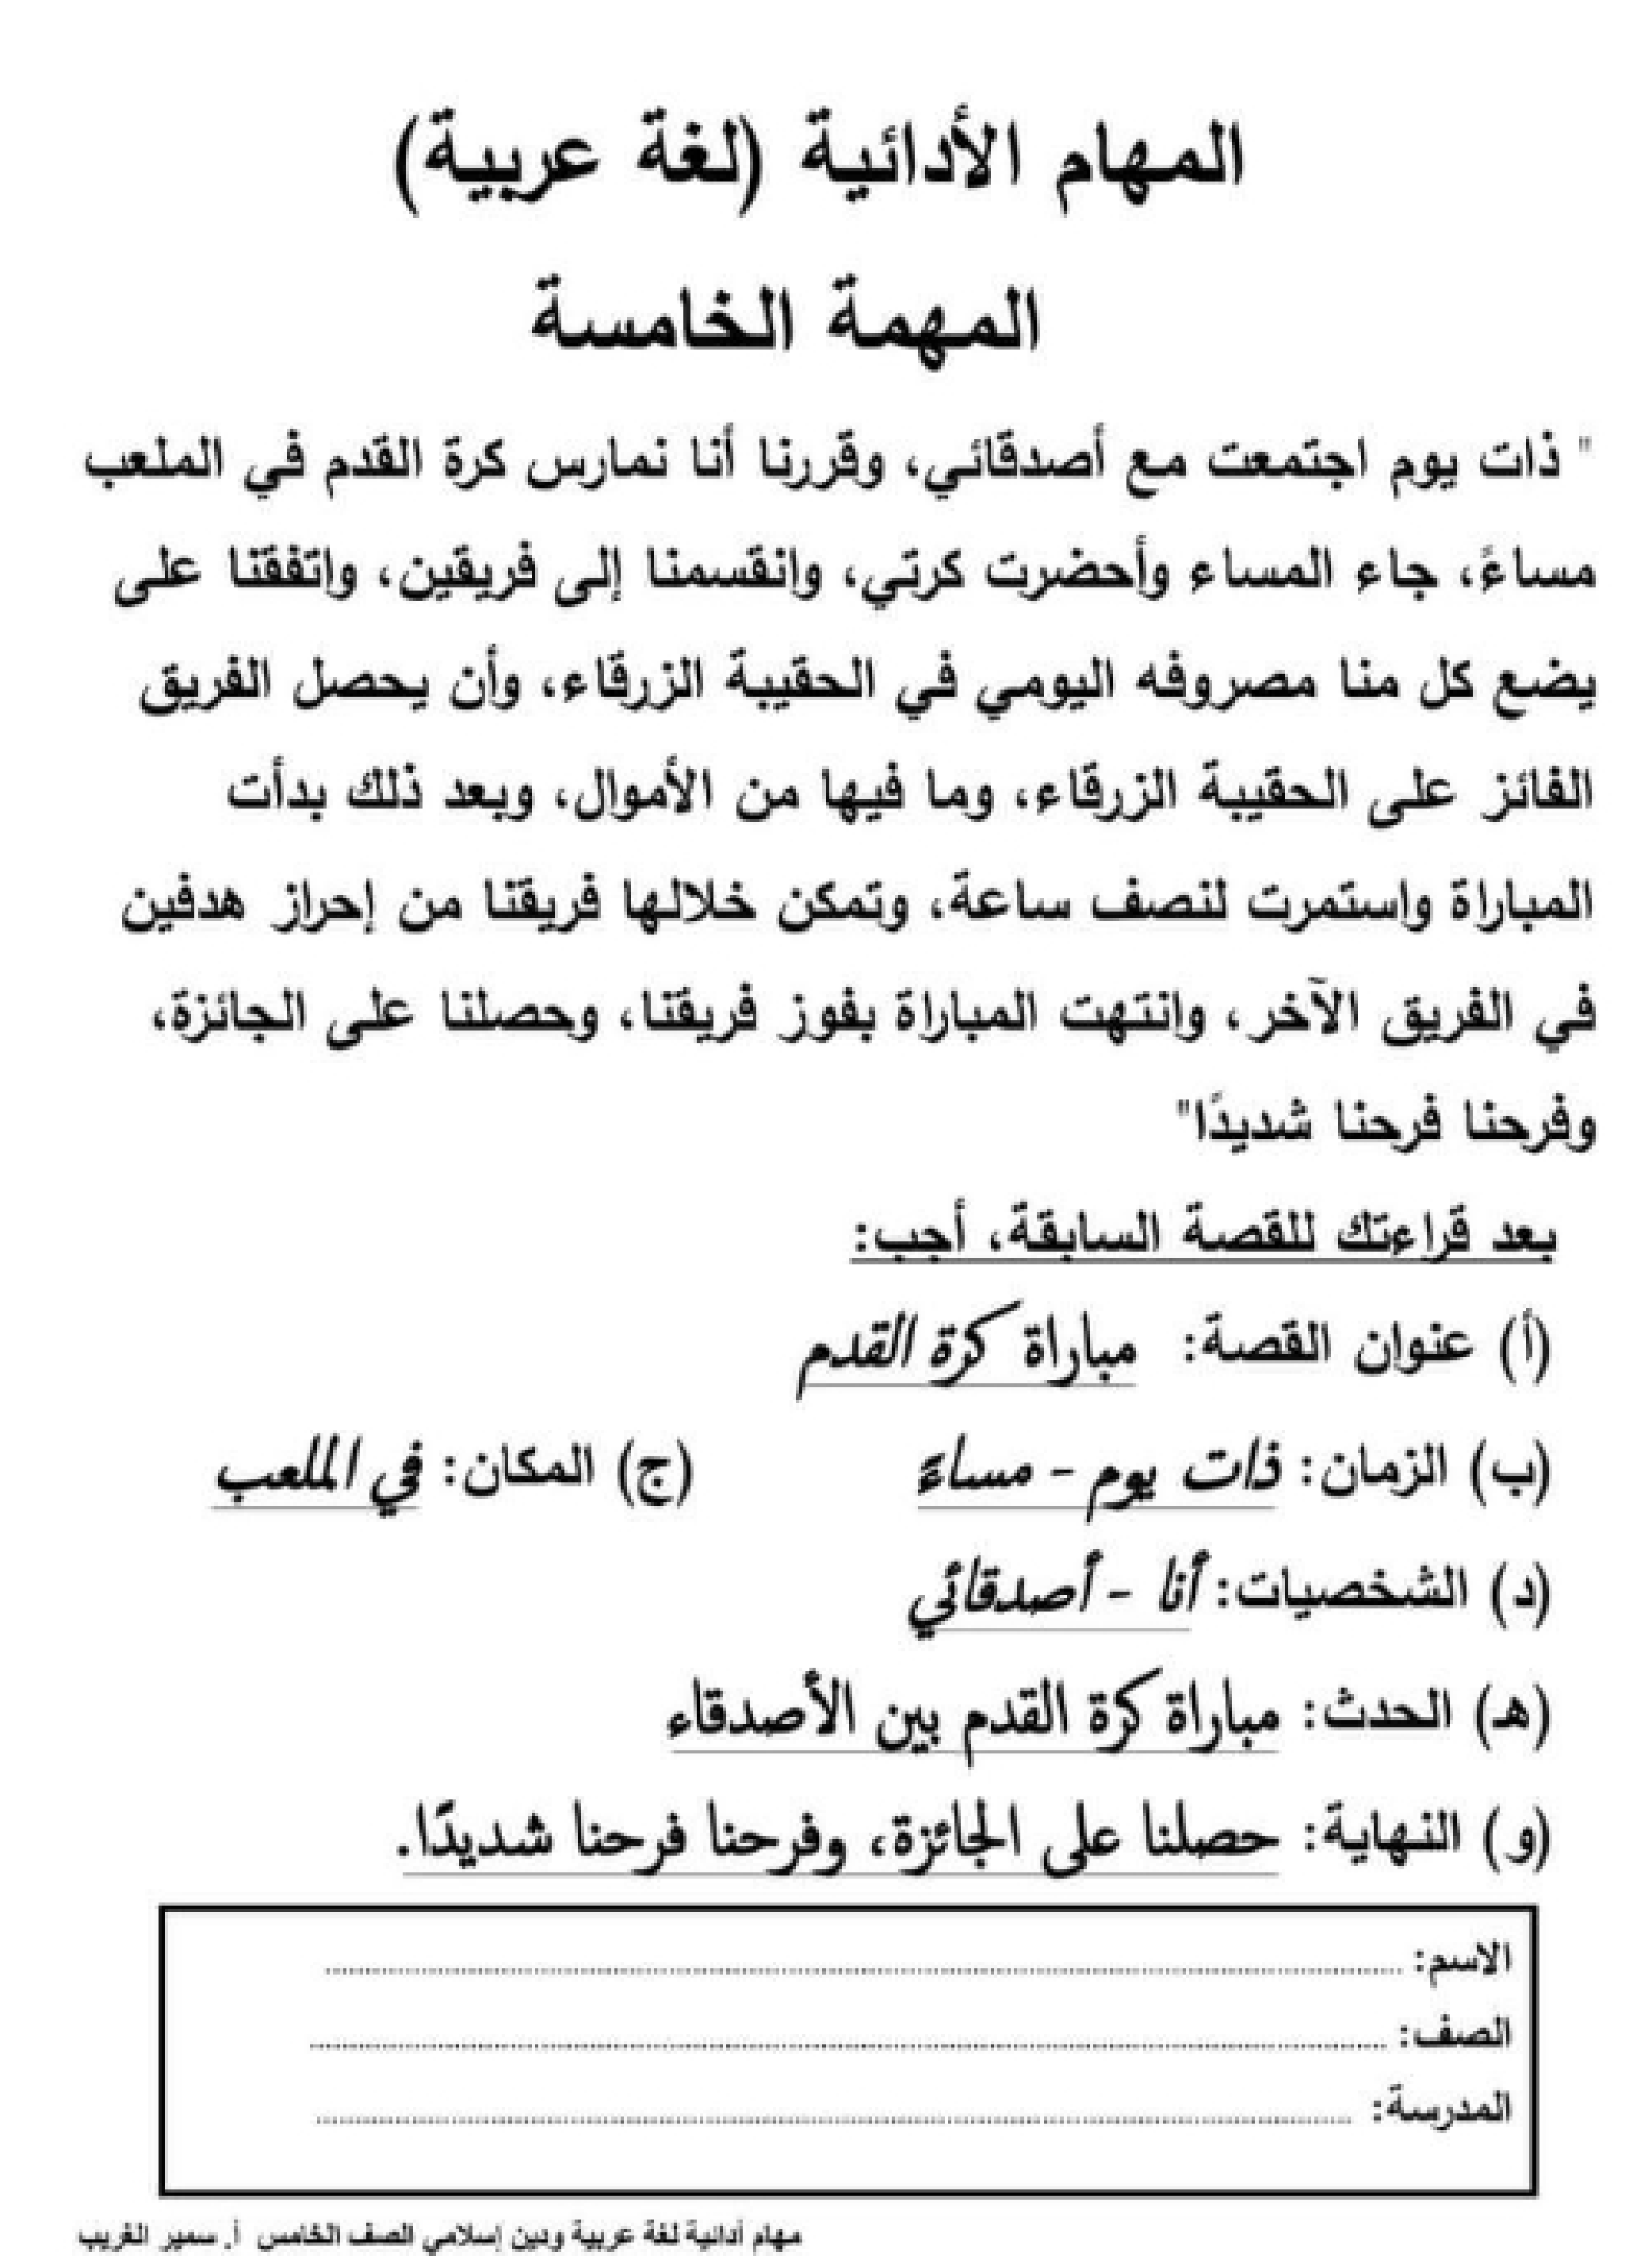 المهام الأدائية (لغة عربية)
المهمة الخامسة
" ذات يوم اجتمعت مع أصدقائي، وقررنا أنا نمارس كرة القدم في الملعب
مساءً، جاء المساء وأحضرت كرتي، وانقسمنا إلى فريقين، واتفقنا على
يضع كل منا مصروفه اليومي في الحقيبة الزرقاء، وأن يحصل الفريق
الفائز على الحقيبة الزرقاء، وما فيها من الأموال، وبعد ذلك بدأت
المباراة واستمرت لنصف ساعة، وتمكن خلالها فريقنا من إحراز هدفين
في الفريق الآخر، وانتهت المباراة بفوز فريقنا، وحصلنا على الجائزة،
وفرحنا فرحنا شديدًا"
بعد قراءتك للقصة السابقة، أجب:
(أ) عنوان القصة: مباراة كرة القدم
(ب) الزمان: ذات يوم - مساءً (ج) المكان: في الملعب
(د) الشخصيات: أنا - أصدقائي
(هـ) الحدث: مباراة كرة القدم بين الأصدقاء
(و) النهاية: حصلنا على الجائزة، وفرحنا فرحنا شديدًا.
الاسم: ................................
الصف: ................................
المدرسة: ................................
مهام أدائية لغة عربية ودين إسلامي الصف الخامس أ. سمير الغريب